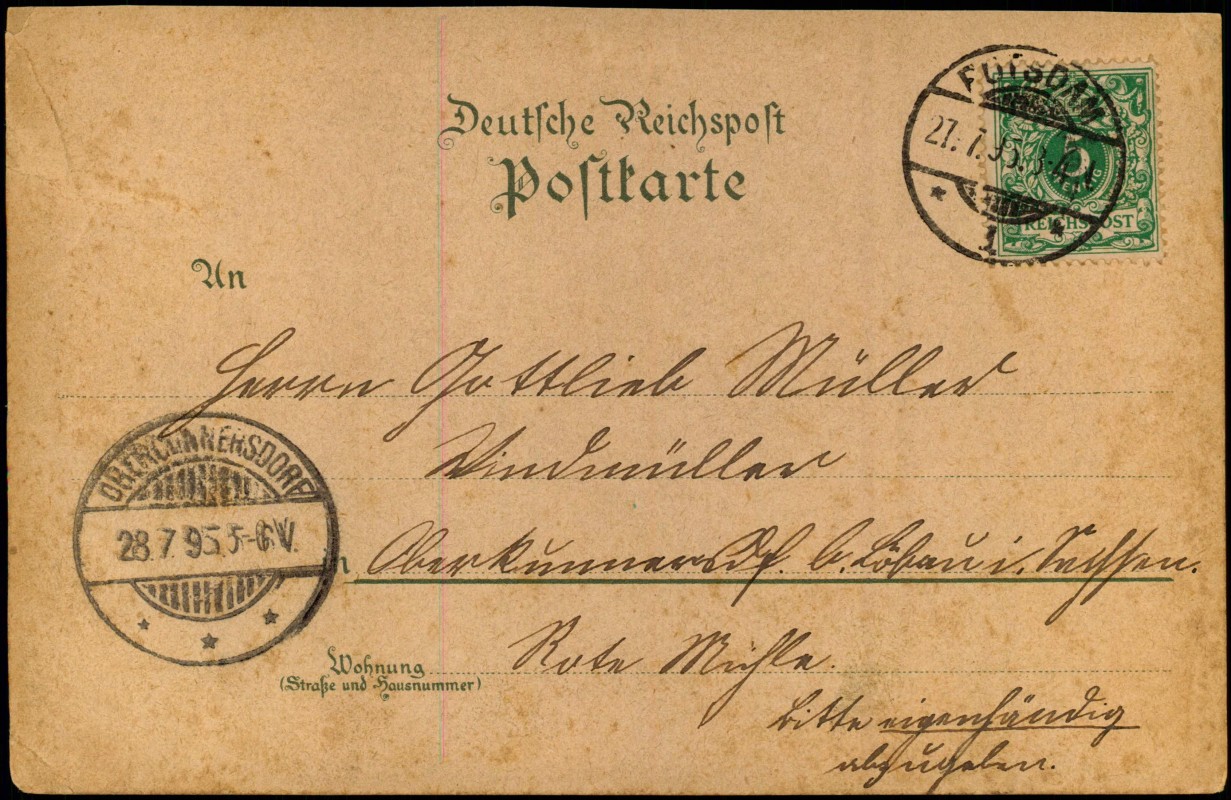 Deutsche Reichspost
Postkarte
POTSDAM
27. 7. 95. 3-4 N
1
5
REICHSPOST
An
Herrn Gottlieb Müller
Windmüller
OBERCUNNERSDORF
28.7.95 5-6 V.
Oberkunnersdf. b. Löbau i. Sachsen.
Rote Mühle.
Wohnung
(Straße und Hausnummer)
Bitte eigenhändig
abzugeben.